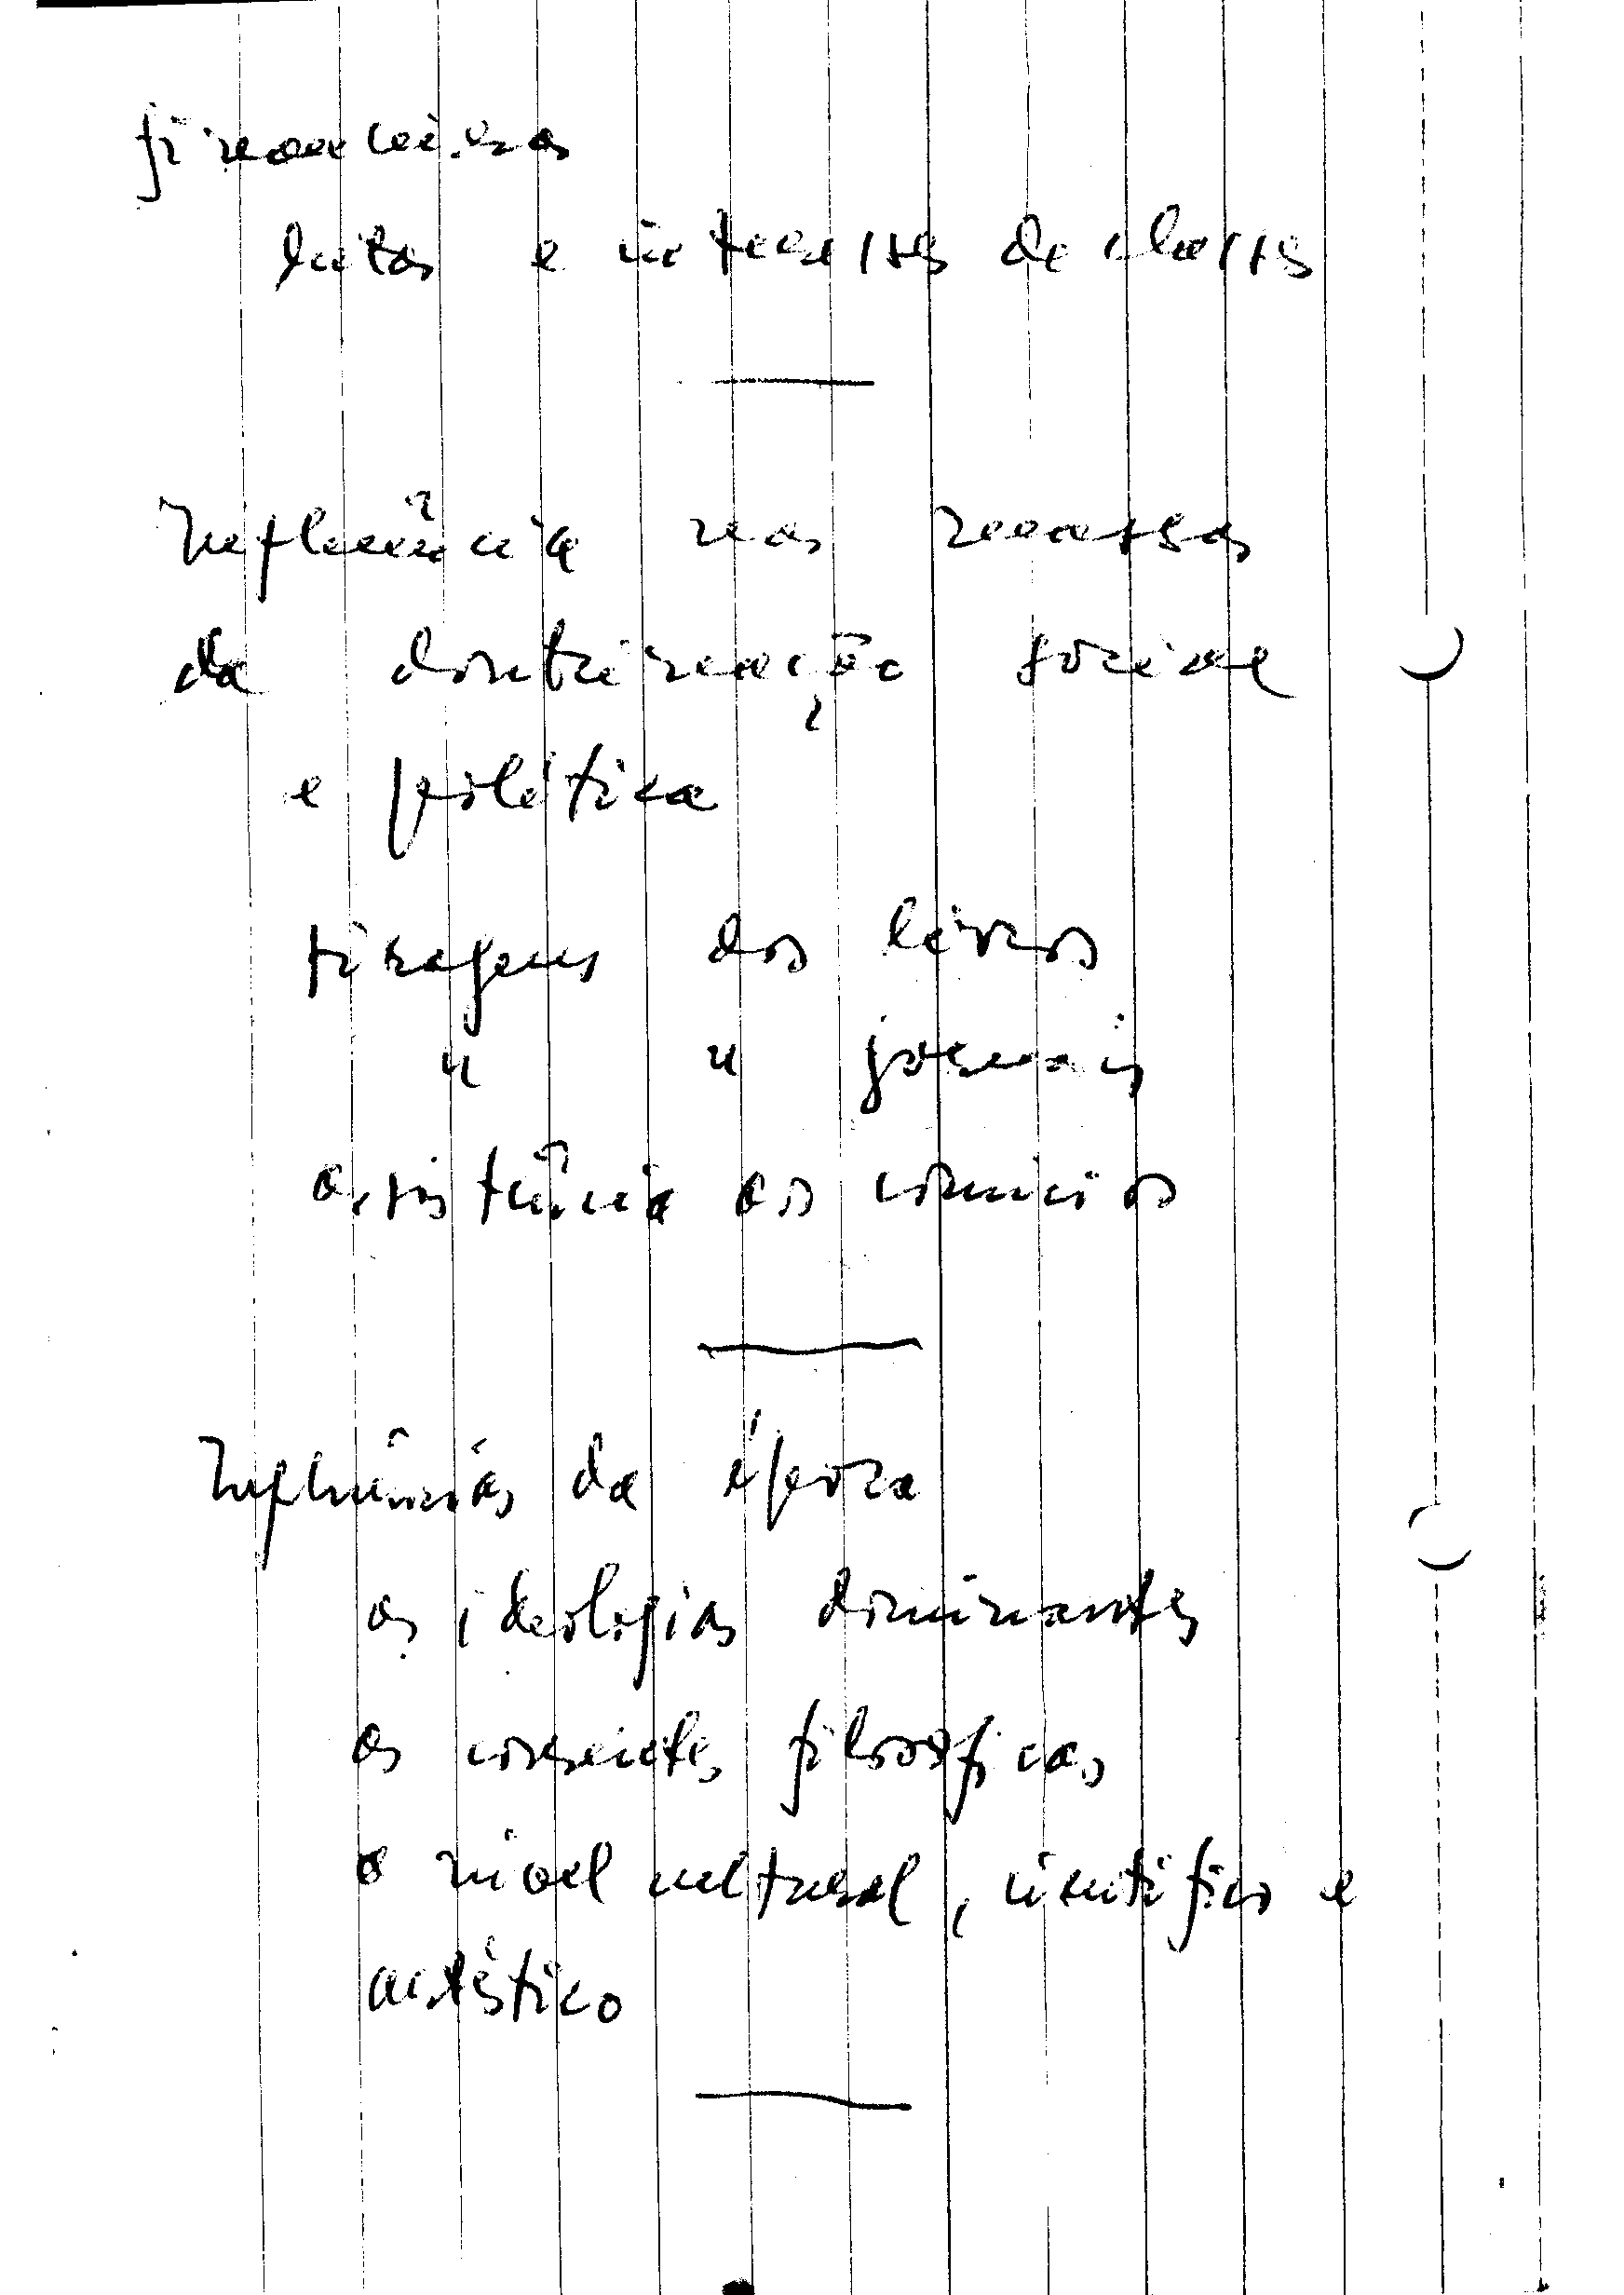 financeiras
lutas e interesses de classes
Influência nas massas
da doutrinação social
e política
tiragens dos livros
" " jornais
assistência aos comícios
Influências da época
as ideologias dominantes
as correntes filosóficas
o nível cultural, científico e
artístico